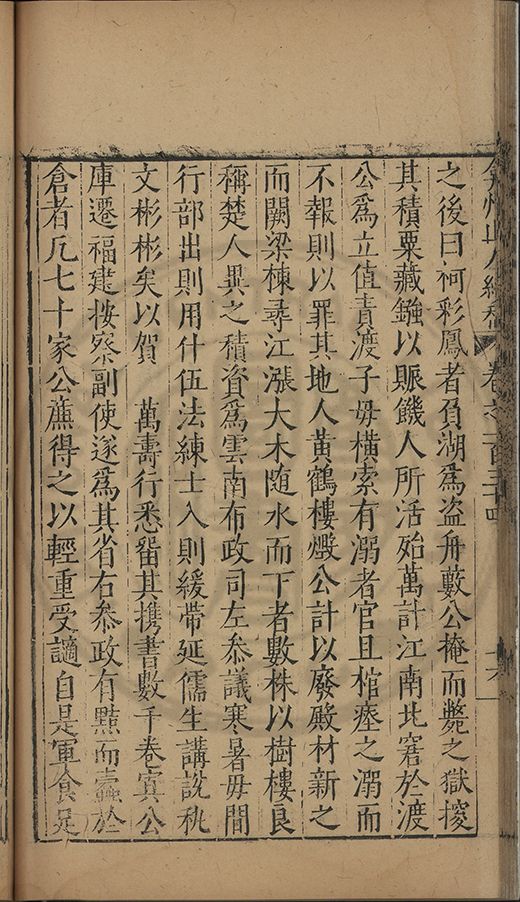 弇州山人續稿 卷之一百三十四 十六
之後曰祠彩鳳者負湖爲盜舟藪公掩而斃之獄搜
其積粟藏鏹以賑饑人所活殆萬計江南北窘於渡
公爲立值責渡子毋橫索有溺者官且棺瘞之溺而
不報則以罪其地人黃鶴樓燬公計以廢殿材新之
而闕梁棟尋江漲大木随水而下者數株以樹樓良
稱楚人異之積資爲雲南布政司左叅議寒暑毋間
行部出則用什伍法練士入則緩帶延儒生講說秇
文彬彬矣以賀　萬壽行悉畱其携書數千卷寘公
庫遷福建按察副使遂爲其省右叅政有黠而蠹於
倉者凢七十家公蘸得之以輕重受讁自是軍食足